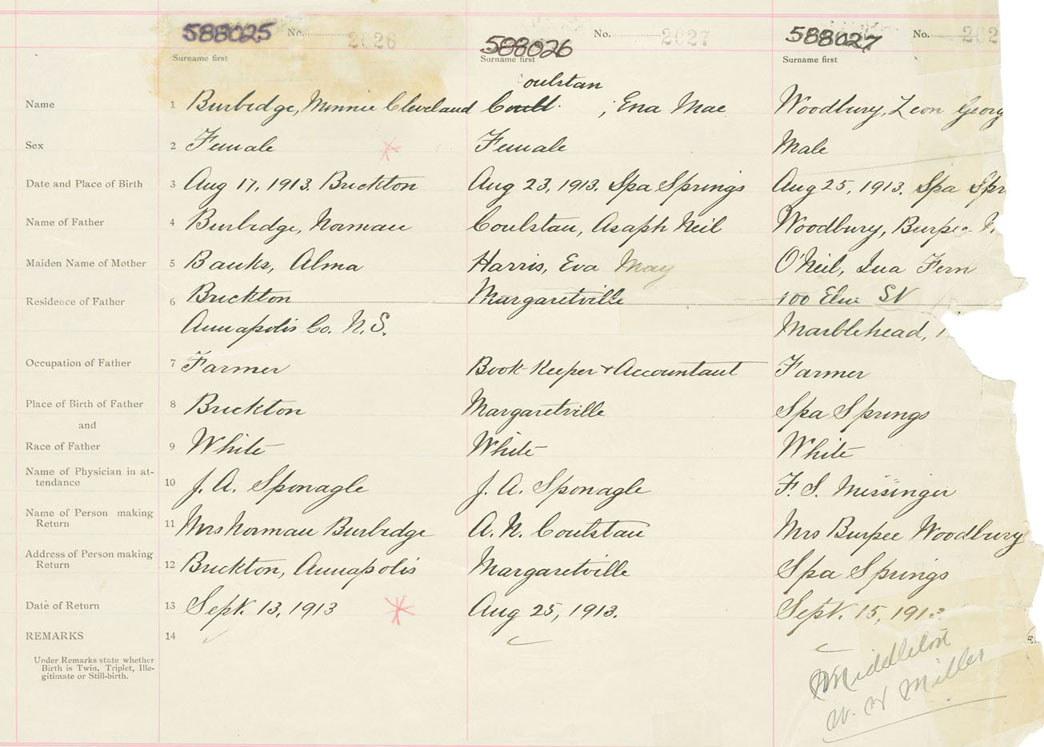 588025 No. 2626 588026 No. 2627 588027 No. 262
Surname first Surname first Surname first
oulstan
Name 1 Burbidge, Minnie Cleveland ; Ena Mae Woodbury, Leon Georg
Sex 2 Female Female Male
Date and Place of Birth 3 Aug 17, 1913. Brickton Aug 23, 1913. Spa Springs Aug 25, 1913. Spa Spr
Name of Father 4 Burbidge, Norman Coulstan, Asaph Neil Woodbury, Burpee
Maiden Name of Mother 5 Banks, Alma Harris, Eva May O'Neil, Ina Fern
Residence of Father 6 Brickton Margaretville 100 Elm St
Annapolis Co. N.S. Marblehead,
Occupation of Father 7 Farmer Book Keeper + Accountant Farmer
Place of Birth of Father 8 Brickton Margaretville Spa Springs
and
Race of Father 9 White White White
Name of Physician in at-
tendance 10 J. A. Sponagle J. A. Sponagle F. S. Messinger
Name of Person making
Return 11 Mrs Norman Burbidge A. N. Coulstan Mrs Burpee Woodbury
Address of Person making
Return 12 Brickton, Annapolis Margaretville Spa Springs
Date of Return 13 Sept. 13, 1913 Aug 25, 1913. Sept. 15, 1913
REMARKS 14
Under Remarks state whether
Birth is Twin, Triplet, Ille-
gitimate or Still-birth.
Middleton
W. H Miller